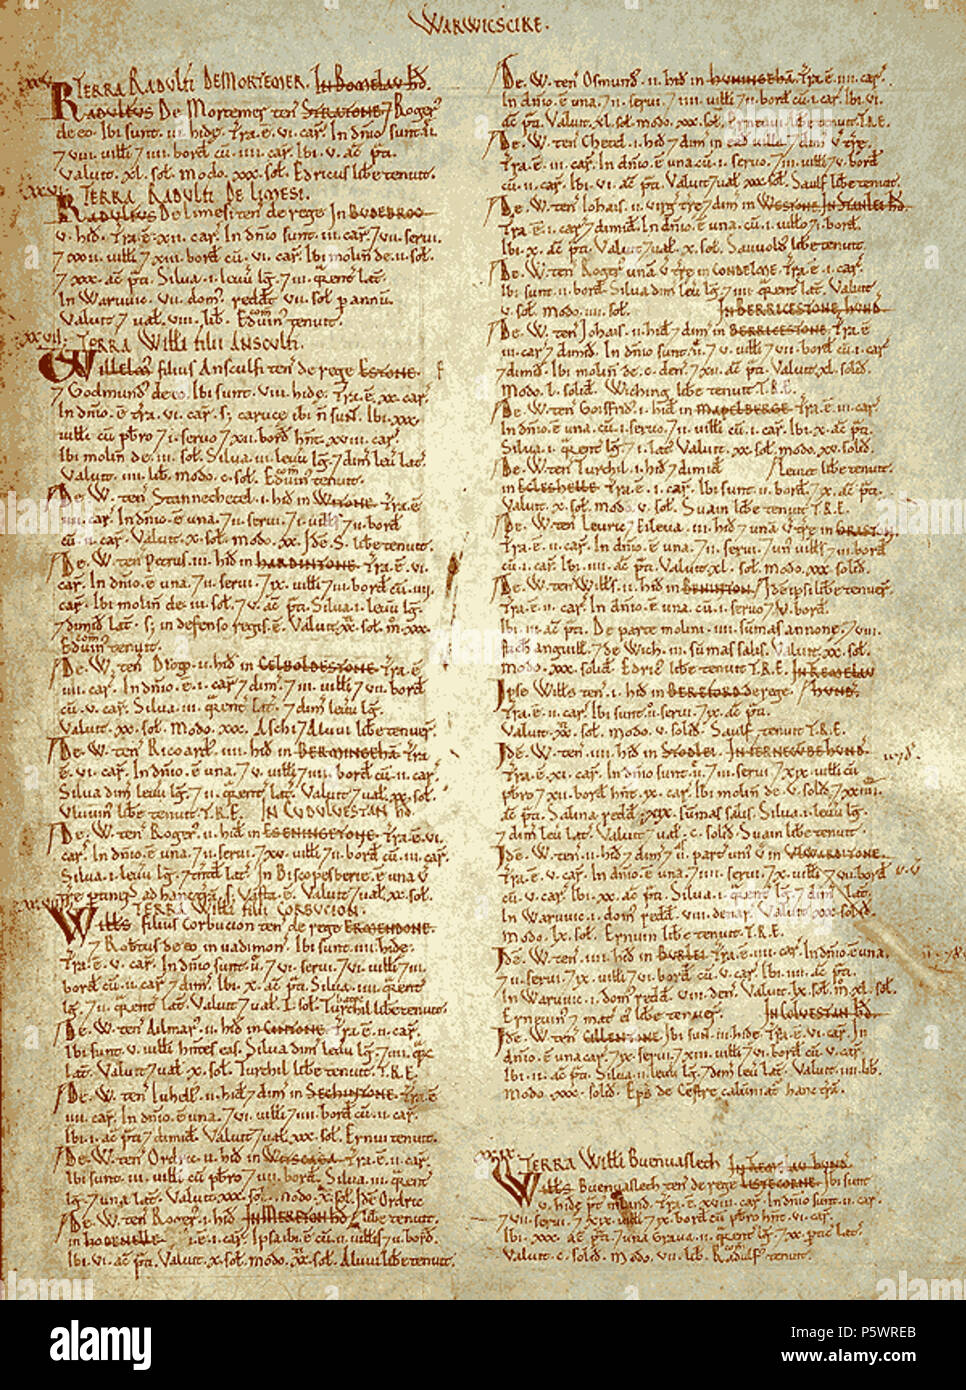 WARWICSCIRE.
xxv. TERRA RADULFI DE MORTEMER. In Bomelau hd
RADULFUS De Mortemer ten STRATONE 7 Roger
de eo. Ibi sunt .iii. hide. Tra. ē. vi. car. In dnio sunt .ii.
7 viii. uilli 7 iiii. bord cū .iiii. car. Ibi .v. ac pti.
Valuit .xl. sol. Modo .xxx. sol. Edricus libe tenuit.
xxvi. TERRA RADULFI DE LIMESI.
RADULFUS De Limesi ten de rege In BUDEBROC
v. hid. Tra. ē. xii. car. In dnio sunt .iii. car. 7 vii. serui.
7 xxx. ac pti. Silua .i. leuu lg. 7 .iii. qrent lat.
In Waruuic .vii. dom redd vii. sol p annū.
Valuit 7 ual .viii. lib. Eduin tenuit.
xxvii. TERRA Willi filii ANSCULFI.
Willelm filius Ansculfi ten de rege ESTONE.
7 Godmund de eo. Ibi sunt .viii. hide. Tra. ē. xx. car.
In dnio. ē tra .vi. car. s; caruce ibi n sunt. Ibi .xxx.
uilli cū pbro 7 .i. seruo 7 xii. bord hnt xviii. car.
Ibi molin de .iii. sol. Silua .iii. leuu lg. 7 dim leu lat.
Valuit .iiii. lib. modo .c. sol. Eduin tenuit.
De. W. ten Stannechetel .i. hid in WITONE. Tra. ē
.iiii. car. In dnio. ē una. 7 ii. serui. 7 .i. uills 7 ii. bord
cū .ii. car. Valuit .x. sol. modo .xx. Ide. S. libe tenuit.
De. W. ten Petrus .iii. hid in HARDINTONE. Tra. ē vi.
car. In dnio. ē una. 7 ii. serui. 7 ix. uilli 7 iii. bord cū .iiii.
car. Ibi molin de .iii. sol. 7 v. ac pti. Silua .i. leuu lg.
7 dimid lat. s; in defenso regis. ē. Valuit xx. sol. m xxx.
Eduin tenuit.
De. W. ten Drogo .ii. hid in CELBOLDESTONE. Tra. ē
.iiii. car. In dnio. ē .i. car 7 dim. 7 iii. uilli 7 vii. bord
cū .v. car. Silua .iii. qrent lat. 7 dim leuu lg.
Valuit .xx. sol. Modo .xxx. Aschi 7 Aluui libe tenuer.
De. W. ten Ricoard .iiii. hid in BERMINGEHA. Tra
ē. vi. car. In dnio. ē una. 7 v. uilli 7 iiii. bord cū .ii. car.
Silua dim leuu lg. 7 ii. qrent lat. Valuit 7 ual .xx. sol.
Uluuin libe tenuit T.R.E. IN CUDULVESTAN hd.
De. W. ten Roger .ii. hid in ESENINGETONE. Tra. ē vi.
car. In dnio. ē una. 7 ii. serui. 7 xv. uilli 7 ii. bord cū .iii. car.
xxviii. TERRA Willi filii CORBUCION.
Wills filius Corbucion ten de rege ERMENDONE.
7 Robtus de eo in uadimon. Ibi sunt .iiii. hide.
Tra. ē .v. car. In dnio sunt .ii. 7 vi. serui. 7 vi. uilli 7 iii.
bord cū .ii. car 7 dim. Ibi .x. ac pti. Silua .iiii. qrent
lg. 7 .ii. qrent lat. Valuit 7 ual .l. sol. Turchil libe tenuit.
De. W. ten Ailmar .ii. hid in Tra. ē .ii. car.
Ibi sunt .v. uilli hntes eas. Silua dim leuu lg. 7 .iiii. qrc
lat. Valuit 7 ual .x. sol. Turchil libe tenuit. T.R.E.
De. W. ten Iuhell .ii. hid 7 dim in SECHINTONE. Tra. ē
.iiii. car. In dnio. ē una. 7 vi. uilli 7 iiii. bord cū .ii. car.
Ibi .i. ac pti 7 dimid. Valuit 7 ual .xxx. sol. Ernui tenuit.
De. W. ten Ordric .ii. hid in Tra. ē .ii. car.
Ibi sunt .iii. uilli cū pbro 7 .iii. bord. Silua .iii. qrent
lg. 7 una lat. Valuit .xxx. sol. modo .x. sol. Ide Ordric
De. W. ten Roger .i. hid. IN MERETON hd. / libe tenuit.
in HORNELLE .i. ē .i. car. Ipsa ibi. ē cū .ii. uillis 7 ii. bord.
Ibi .vi. ac pti. Valuit .x. sol. modo .xx. sol. Aluui libe tenuit.
De. W. ten Osmund .ii. hid in HUNINGEHA. Tra. ē .iiii. car.
In dnio. ē una. 7 .ii. serui. 7 iiii. uilli 7 ii. bord cū .i. car. Ibi .vi.
ac pti. Valuit .xl. sol. modo .xxx. sol. Ernetui libe tenuit. T.R.E.
De. W. ten Chetel .i. hid 7 dim in ead uilla 7 dim v træ.
Tra. ē .iii. car. In dnio. ē una cū .i. seruo. 7 iii. uilli 7 v. bord
cū .ii. car. Ibi .vi. ac pti. Valuit 7 ual .xxx. sol. Saulf libe tenuit.
De. W. ten Iohais .ii. uirg træ 7 dim in WESTONE. IN STANLEI hd.
Tra. ē .i. car 7 dimid. In dnio. ē una. cū .i. uillo 7 .i. bord.
Ibi .x. ac pti. Valuit 7 ual .x. sol. Sauuold libe tenuit.
De. W. ten Roger unā v træ in CONDELME. Tra. ē .i. car.
Ibi sunt .ii. bord. Silua dim leuu lg. 7 .iii. qrent lat. Valuit
.v. sol. modo .iii. sol. IN BERRICESTONE HUND
De. W. ten Johais .ii. hid 7 dim in BERRICESTONE. Tra. ē
.iii. car 7 dimid. In dnio sunt .ii. 7 v. uilli 7 vii. bord cū .i. car
7 dimid. Ibi molin de .c. den. 7 xii. ac pti. Valuit .xl. solid.
Modo .l. solid. Wiching libe tenuit T.R.E.
De. W. ten Goisfrid .i. hid in MAPELBERGE. Tra. ē .iii. car.
In dnio. ē una. cū .i. seruo. 7 ii. uilli cū .i. car. Ibi .x. ac pti.
Silua .i. qrent lg. 7 .i. lat. Valuit .xx. sol. modo .xv. solid.
De. W. ten Turchil .i. hid 7 dimid / Leuric libe tenuit.
in ECLESHELLE. Tra. ē .i. car. Ibi sunt .ii. bord. 7 ix. ac pti.
Valuit .x. sol. modo .v. sol. Suain libe tenuit T.R.E.
De. W. ten Leuric 7 Eileua .iii. hid 7 una v træ in GRASTON.
Tra. ē .ii. car. In dnio. ē una. 7 ii. serui. 7 un uills 7 iii. bord
cū .i. car. Ibi .vi. ac pti. Valuit .xl. sol. modo .xxx. solid.
De. W. ten Wills .ii. hid in BENINTON. / Ide ipsi libe tenuer.
Tra. ē .ii. car. In dnio. ē una. cū .i. seruo 7 v. bord.
Ibi .iii. ac pti. De parte molini .iiii. sūmas annone. 7 viii.
stich anguill. 7 de Wich .iii. sūmas salis. Valuit .xx. sol.
modo .xxx. solid. Edric libe tenuit T.R.E. IN REMELAU
Ipse Wills ten .i. hid in BEREFORD de rege. / HUND.
Tra. ē .ii. car. Ibi sunt .ii. serui. 7 ix. ac pti.
Valuit .xx. sol. modo .v. solid. Saulf tenuit T.R.E.
Ide. W. ten .iiii. hid in STODLEI. IN FERNECUBE HUND.
Tra. ē .xi. car. In dnio sunt .ii. 7 iii. serui. 7 xix. uilli cū
pbro 7 xii. bord hnt .ix. car. Ibi molin de .v. solid. 7 xxiiii.
ac pti. Salina redd .xix. sūmas salis. Silua .i. leuu lg.
7 dim leu lat. Valuit 7 ual .c. solid. Suain libe tenuit.
Ide. W. ten .ii. hid 7 dim 7 .ii. part uni v in ULWARDITONE.
Tra. ē .v. car. In dnio. ē una. 7 iiii. serui. 7 x. uilli 7 vii. bord
cū .v. car. Ibi .xx. ac pti. Silua .i. qrent lg. 7 dim lat.
In Waruuic .i. dom redd .viii. denar. Valuit .xxx. solid.
modo .lx. sol. Ernuin libe tenuit T.R.E.
Ide. W. ten .iiii. hid in BURLEI. Tra. ē .iiii. car. In dnio. ē una.
7 ii. serui. 7 ix. uilli 7 vi. bord cū .v. car. Ibi .iiii. ac pti.
In Waruuic .i. dom redd .viii. den. Valuit .lx. sol. m .xl. sol.
Erneuin 7 mat ei libe tenuer. IN COLVESTAN hd.
Ide. W. ten CILLENTONE. Ibi sunt .iii. hide. Tra. ē .vi. car. In
dnio. ē una car. 7 ix. serui. 7 xiii. uilli 7 vi. bord cū .v. car.
Ibi .ii. ac pti. Silua .ii. leuu lg. 7 dim leu lat. Valuit .iiii. lib.
modo .xxx. solid. Eps de Cestre calumniat hanc tra.
xxix. TERRA Willi Buenuaslech
Wills Buenuaslech ten de rege LISTECORNE. Ibi sunt
7 vii. serui. 7 xix. uilli 7 ix. bord cū pbro hnt .vi. car.
Valuit .c. solid. modo .vii. lib. Radulf tenuit.
alamy
Image ID: P5WREB
www.alamy.com